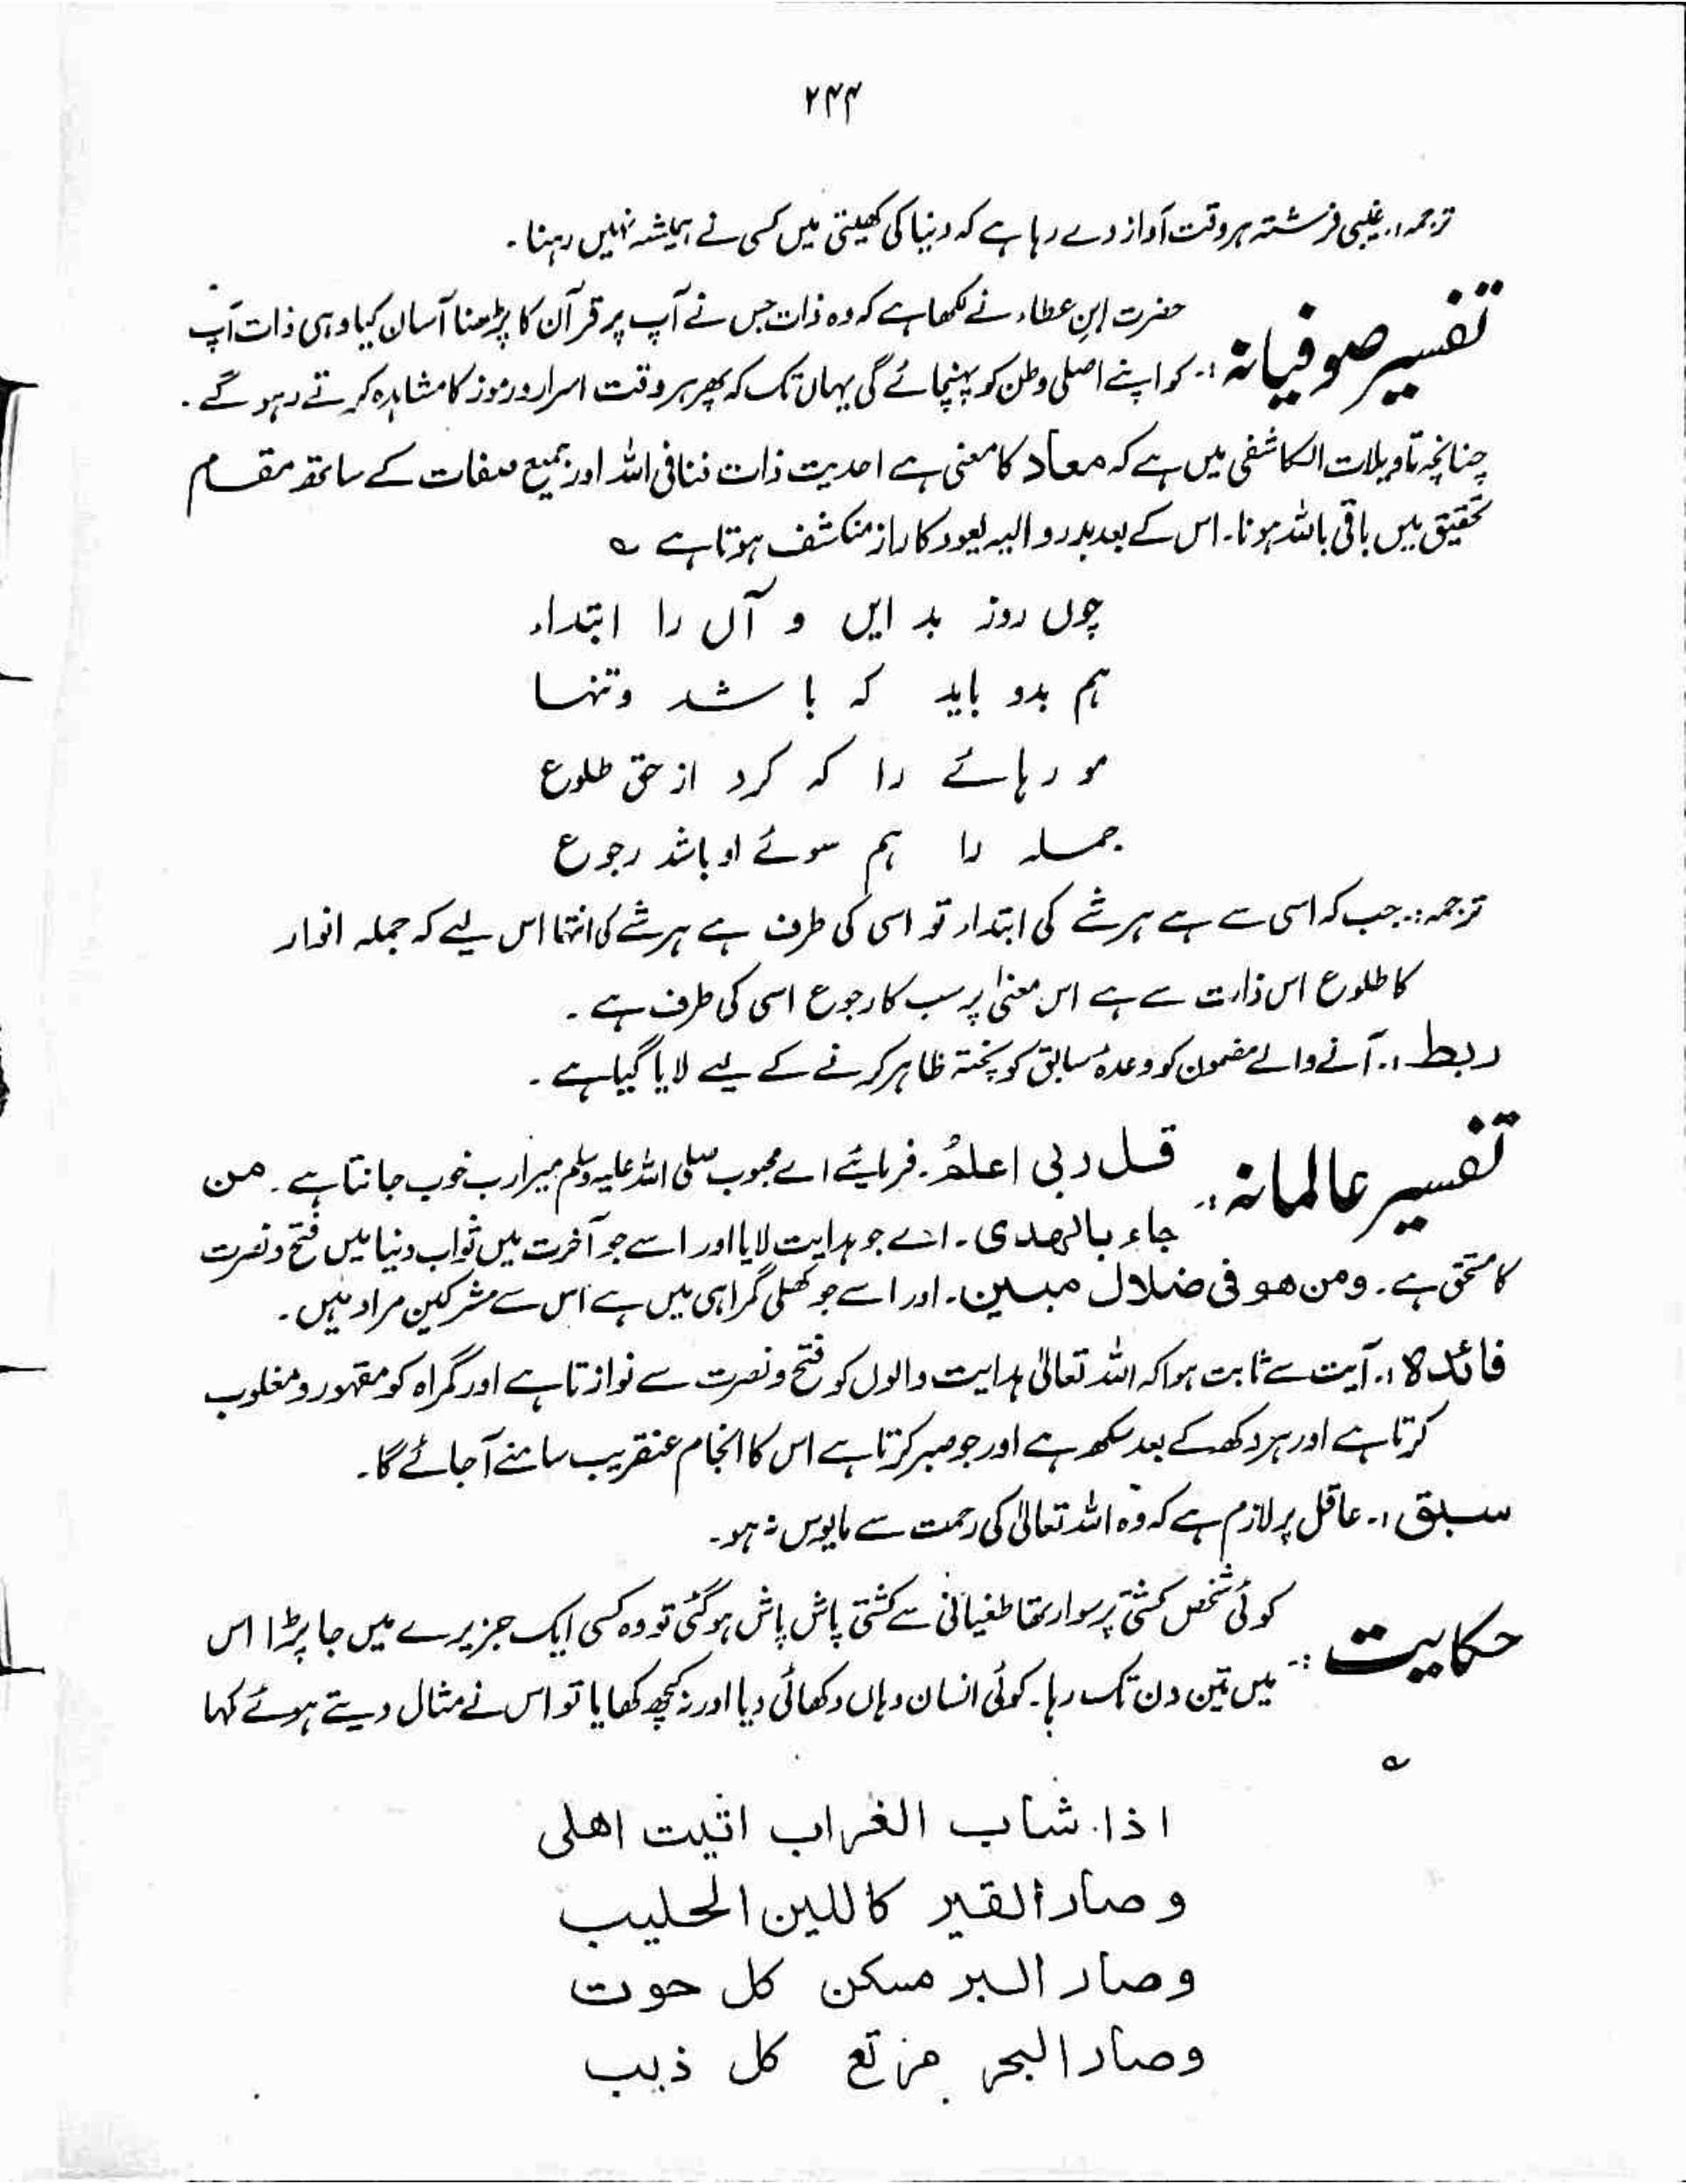 ۲۴۴
ترجمہ:۔ غیبی فرشتہ ہر وقت آواز دے رہا ہے کہ دنیا کی کھیتی میں کسی نے ہمیشہ نہیں رہنا۔
تفسیر صوفیانہ:۔ حضرت ابنِ عطاء نے لکھا ہے کہ وہ ذات جس نے آپ پر قرآن کا پڑھنا آسان کیا وہی ذات آپ
کو اپنے اصلی وطن کو پہنچائے گی یہاں تک کہ پھر ہر وقت اسرار و رموز کا مشاہدہ کرتے رہو گے۔
چنانچہ تاویلات الکاشفی میں ہے کہ معاد کا معنی ہے احدیت ذات فنا فی اللہ اور جمیع صفات کے ساتھ مقام
تحقیق میں باقی باللہ ہونا۔ اس کے بعد بدرو الیہ یعود کا راز منکشف ہوتا ہے ؎
چوں روز بد ایں و آں را ابتداء
ہم بدو باید کہ باشد وتنہا
مو رہائے را کہ کرد از حق طلوع
جملہ را ہم سوئے او باشد رجوع
ترجمہ:۔ جب کہ اسی سے ہے ہر شے کی ابتداء تو اسی کی طرف ہے ہر شے کی انتہا اس لیے کہ جملہ انوار
کا طلوع اس ذات سے ہے اس معنیٰ پر سب کا رجوع اسی کی طرف ہے۔
ربط:۔ آنے والے مضمون کو وعدۂ سابق کو پختہ ظاہر کرنے کے لیے لایا گیا ہے۔
تفسیر عالمانہ:۔ قل ربی اعلمُ۔ فرمایئے اے محبوب صلی اللہ علیہ وسلم میرا رب خوب جانتا ہے۔ من
جاء بالھدی۔ اسے جو ہدایت لایا اور اسے جو آخرت میں ثواب دنیا میں فتح و نصرت
کا مستحق ہے۔ ومن ھو فی ضلال مبین۔ اور اسے جو کھلی گمراہی میں ہے اس سے مشرکین مراد ہیں۔
فائدہ:۔ آیت سے ثابت ہوا کہ اللہ تعالیٰ ہدایت والوں کو فتح و نصرت سے نوازتا ہے اور گمراہ کو مقہور و مغلوب
کرتا ہے اور ہر دکھ کے بعد سکھ ہے اور جو صبر کرتا ہے اس کا انجام عنقریب سامنے آجائے گا۔
سبق:۔ عاقل پر لازم ہے کہ وہ اللہ تعالیٰ کی رحمت سے مایوس نہ ہو۔
حکایت:۔ کوئی شخص کشتی پر سوار تھا طغیانی سے کشتی پاش پاش ہوگئی تو وہ کسی ایک جزیرے میں جا پڑا اس
میں تین دن تک رہا۔ کوئی انسان وہاں دکھائی دیا اور نہ کچھ کھایا تو اس نے مثال دیتے ہوئے کہا
؎
اذا شاب الغراب اتیت اھلی
وصار القیر کاللبن الحلیب
وصار البر مسکن کل حوت
وصار البحر مرتع کل ذیب